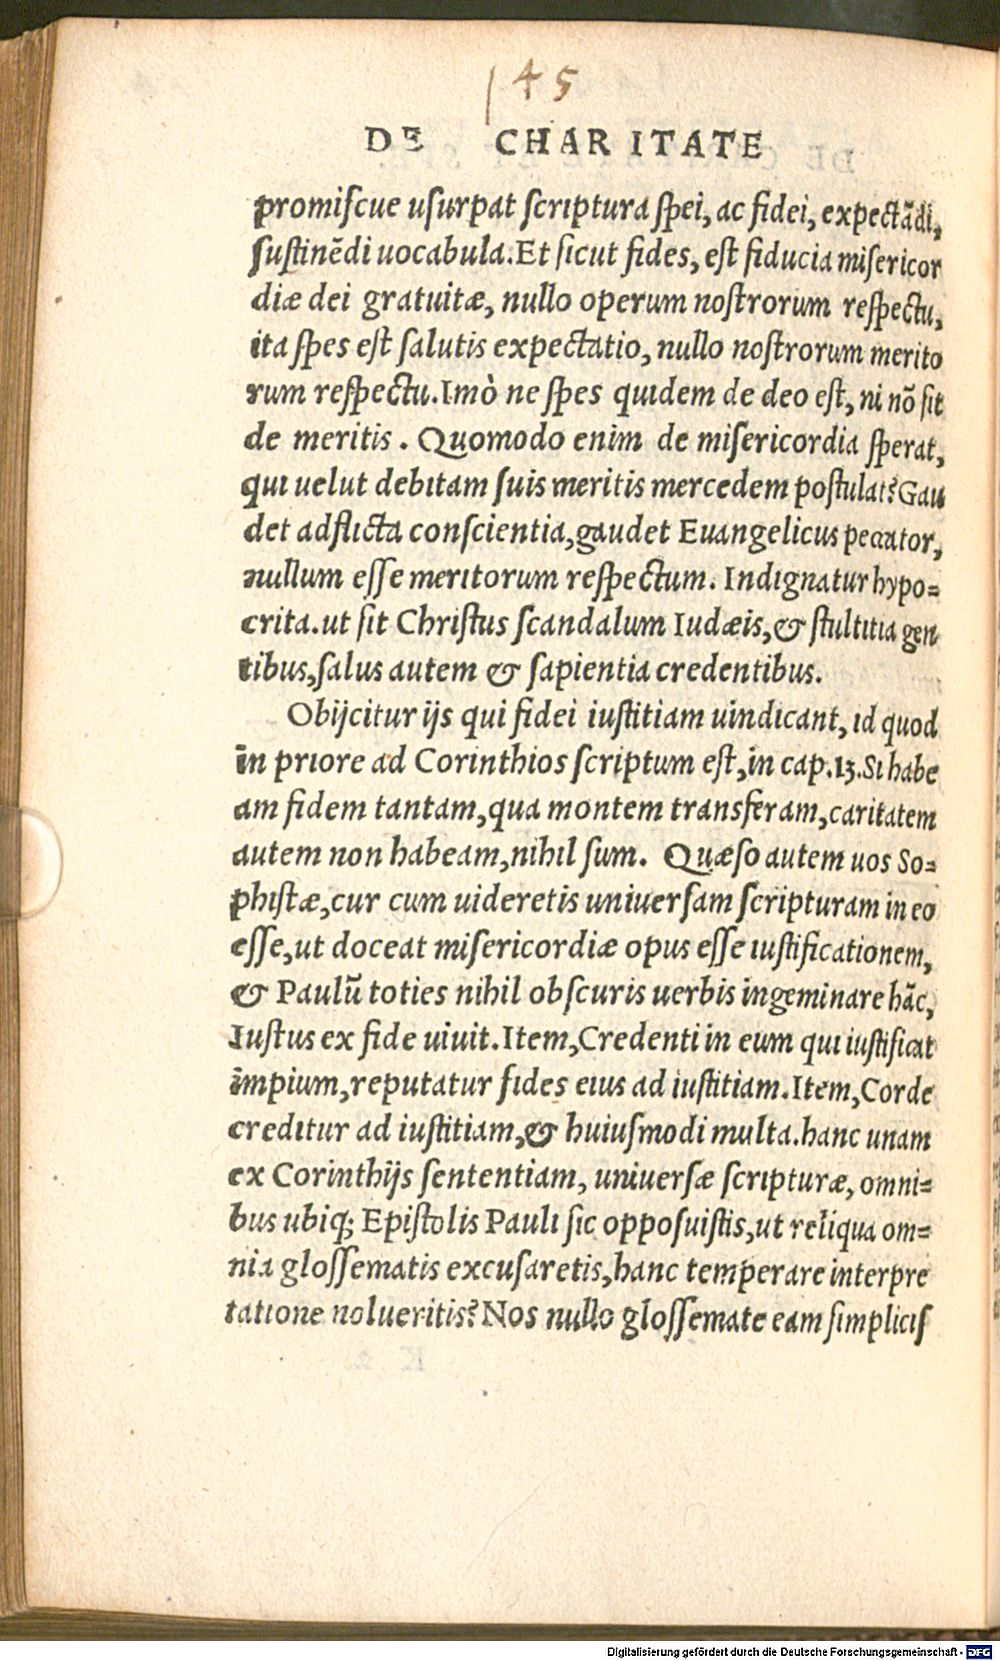 145
DE CHARITATE
promiſcue uſurpat ſcriptura ſpei, ac fidei, expectãdi,
ſuſtinẽdi uocabula. Et ſicut fides, eſt fiducia miſericor
diæ dei gratuitæ, nullo operum noſtrorum reſpectu,
ita ſpes eſt ſalutis expectatio, nullo noſtrorum merito
rum reſpectu. Imò ne ſpes quidem de deo eſt, ni nõ ſit
de meritis. Quomodo enim de miſericordia ſperat,
qui uelut debitam ſuis meritis mercedem poſtulat? Gau
det adflicta conſcientia, gaudet Euangelicus peccator,
nullum eſſe meritorum reſpectum. Indignatur hypo=
crita. ut ſit Chriſtus ſcandalum Iudæis, & ſtultitia gen
tibus, ſalus autem & ſapientia credentibus.
Obijcitur ijs qui fidei iuſtitiam uindicant, id quod
in priore ad Corinthios ſcriptum eſt, in cap. 13. Si habe
am fidem tantam, qua montem transferam, caritatem
autem non habeam, nihil ſum. Quæſo autem uos So=
phiſtæ, cur cum uideretis uniuerſam ſcripturam in eo
eſſe, ut doceat miſericordiæ opus eſſe iuſtificationem,
& Paulũ toties nihil obſcuris uerbis ingeminare hãc,
Iuſtus ex fide uiuit. Item, Credenti in eum qui iuſtificat
impium, reputatur fides eius ad iuſtitiam. Item, Corde
creditur ad iuſtitiam, & huiuſmodi multa. hanc unam
ex Corinthijs ſententiam, uniuerſæ ſcripturæ, omni=
bus ubiq; Epiſtolis Pauli ſic oppoſuiſtis, ut reliqua om=
nia gloſſematis excuſaretis, hanc temperare interpre
tatione nolueritis? Nos nullo gloſſemate eam ſimpliciſ
Digitalisierung gefördert durch die Deutsche Forschungsgemeinschaft - DFG